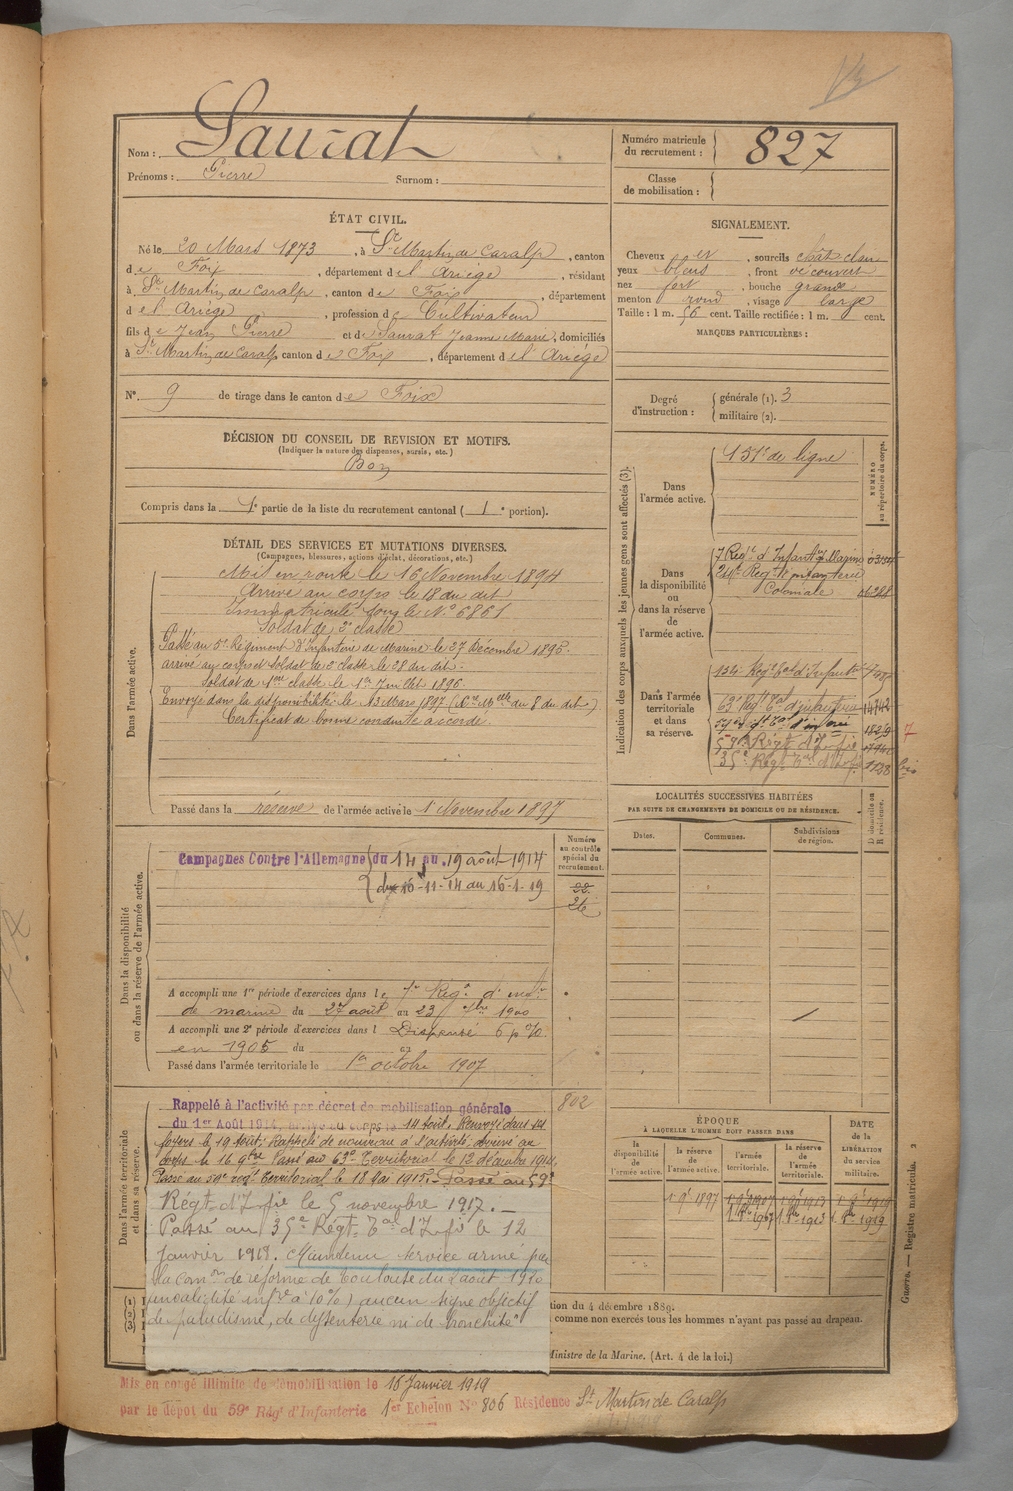 Nom : Saurat
Prénoms : Pierre Surnom :
Numéro matricule du recrutement : 827
Classe de mobilisation :
ÉTAT CIVIL.
Né le 20 Mars 1873, à St Martin de Caralp, canton
de Foix, département de l'Ariège, résidant
à St Martin de Caralp, canton de Foix, département
de l'Ariège, profession de Cultivateur
fils de Jean Pierre et de Saurat Jeanne Marie, domiciliés
à St Martin de Caralp, canton de Foix, département de l'Ariège
N° 9 de tirage dans le canton de Foix
SIGNALEMENT.
Cheveux et, sourcils chât clair
yeux bleus, front découvert
nez fort, bouche grande
menton rond, visage large
Taille : 1 m. 56 cent. Taille rectifiée : 1 m. cent.
MARQUES PARTICULIÈRES :
Degré d'instruction : générale (1). 3
militaire (2).
DÉCISION DU CONSEIL DE REVISION ET MOTIFS.
(Indiquer la nature des dispenses, sursis, etc.)
Bon
Compris dans la 1e partie de la liste du recrutement cantonal (1e portion).
DÉTAIL DES SERVICES ET MUTATIONS DIVERSES.
(Campagnes, blessures, actions d'éclat, décorations, etc.)
Dans l'armée active.
Mis en route le 16 Novembre 1894
Arrivé au corps le 18 du dit
Immatriculé sous le N° 6861
Soldat de 2e classe
Passé au 5e Régiment d'Infanterie de Marine le 27 Décembre 1895.
arrivé au corps et soldat de 2e classe le 28 du dit.
Soldat de 1ere classe le 1er Juillet 1896.
Envoyé dans la disponibilité le 13 Mars 1897 (du 8 du dit)
Certificat de bonne conduite accordé.
Passé dans la réserve de l'armée active le 1 Novembre 1897
Indication des corps auxquels les jeunes gens sont affectés (3).
NUMÉRO au répertoire du corps.
Dans l'armée active.
151e de ligne
Dans la disponibilité ou dans la réserve de l'armée active.
7 Regt d'Infant de Marine
24e Regt d'Infanterie
Coloniale
Dans l'armée territoriale et dans sa réserve.
134 Regt Tal d'Infant
63e Regt Tal d'infanterie 14742
59e Regt Tal d'infrie 1829
59e Régt d'Infie
35e Régt Tal d'Infie 1138 bis
LOCALITÉS SUCCESSIVES HABITÉES
PAR SUITE DE CHANGEMENTS DE DOMICILE OU DE RÉSIDENCE.
Dates. Communes. Subdivisions de région. D domicile ou R résidence.
Dans la disponibilité ou dans la réserve de l'armée active.
Campagnes Contre l'Allemagne du 14 au 19 août 1914
du 16-11-14 au 16-1-19
Numéro au contrôle spécial du recrutement.
22
26
A accompli une 1re période d'exercices dans le 7e Regt d'infie
de marine du 27 août au 23 7bre 1900
A accompli une 2e période d'exercices dans l Dispensé 6 p %
en 1905 du au
Passé dans l'armée territoriale le 1er octobre 1907
Dans l'armée territoriale et dans sa réserve.
802
Rappelé à l'activité par décret de mobilisation générale
du 1er Août 1914, arrivé au corps le 14 août. Renvoyé dans ses
foyers le 19 août. Rappelé de nouveau à l'activité arrivé au
corps le 16 9bre Passé au 63e Territorial le 12 décembre 1914.
Passé au 59e regt Territorial le 18 1915. Passé au 59e
Régt d'Infie le 5 novembre 1917.
Passé au 35e Régt Tal d'Infie le 12
Janvier 1918. Maintenu service armé par
la comon de réforme de Toulouse du 2 août 1920
invalidité infre à 10% ) aucun signe objectif
de paludisme, de dyssenterie ni de bronchite"
ÉPOQUE
À LAQUELLE L'HOMME DOIT PASSER DANS
la disponibilité de l'armée active. la réserve de l'armée active. l'armée territoriale. la réserve de l'armée territoriale.
DATE de la LIBÉRATION du service militaire.
1 9bre 1897 1 9bre 1907 1 9bre 1913 1 9bre 1919
1 8bre 1907 1 8bre 1913 1 8bre 1919
tion du 4 décembre 1889.
comme non exercés tous les hommes n'ayant pas passé au drapeau.
Ministre de la Marine. (Art. 4 de la loi.)
Guerre. — Registre matricule. 2
Mis en congé illimité de démobilisation le 16 Janvier 1919
par le dépôt du 59e Rég d'Infanterie 1er Echelon N° 806 Résidence St Martin de Caralp